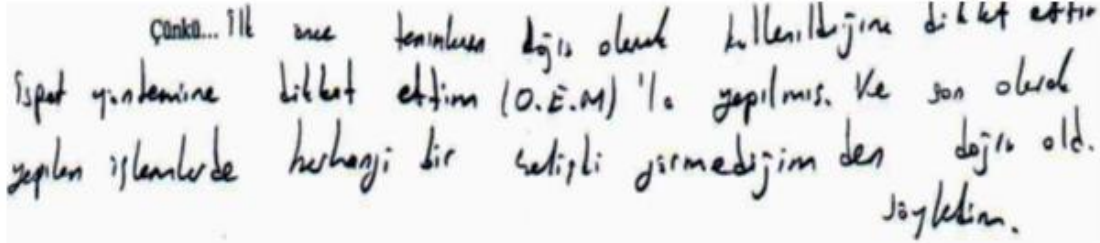 Çünkü... ilk önce tanımların doğru olarak kullanıldığına dikkat ettim
ispat yöntemine dikkat ettim (O.E.M) 'la yapılmış. Ve son olarak
yapılan işlemlerde herhangi bir çelişki görmediğim den doğru old.
söyledim.